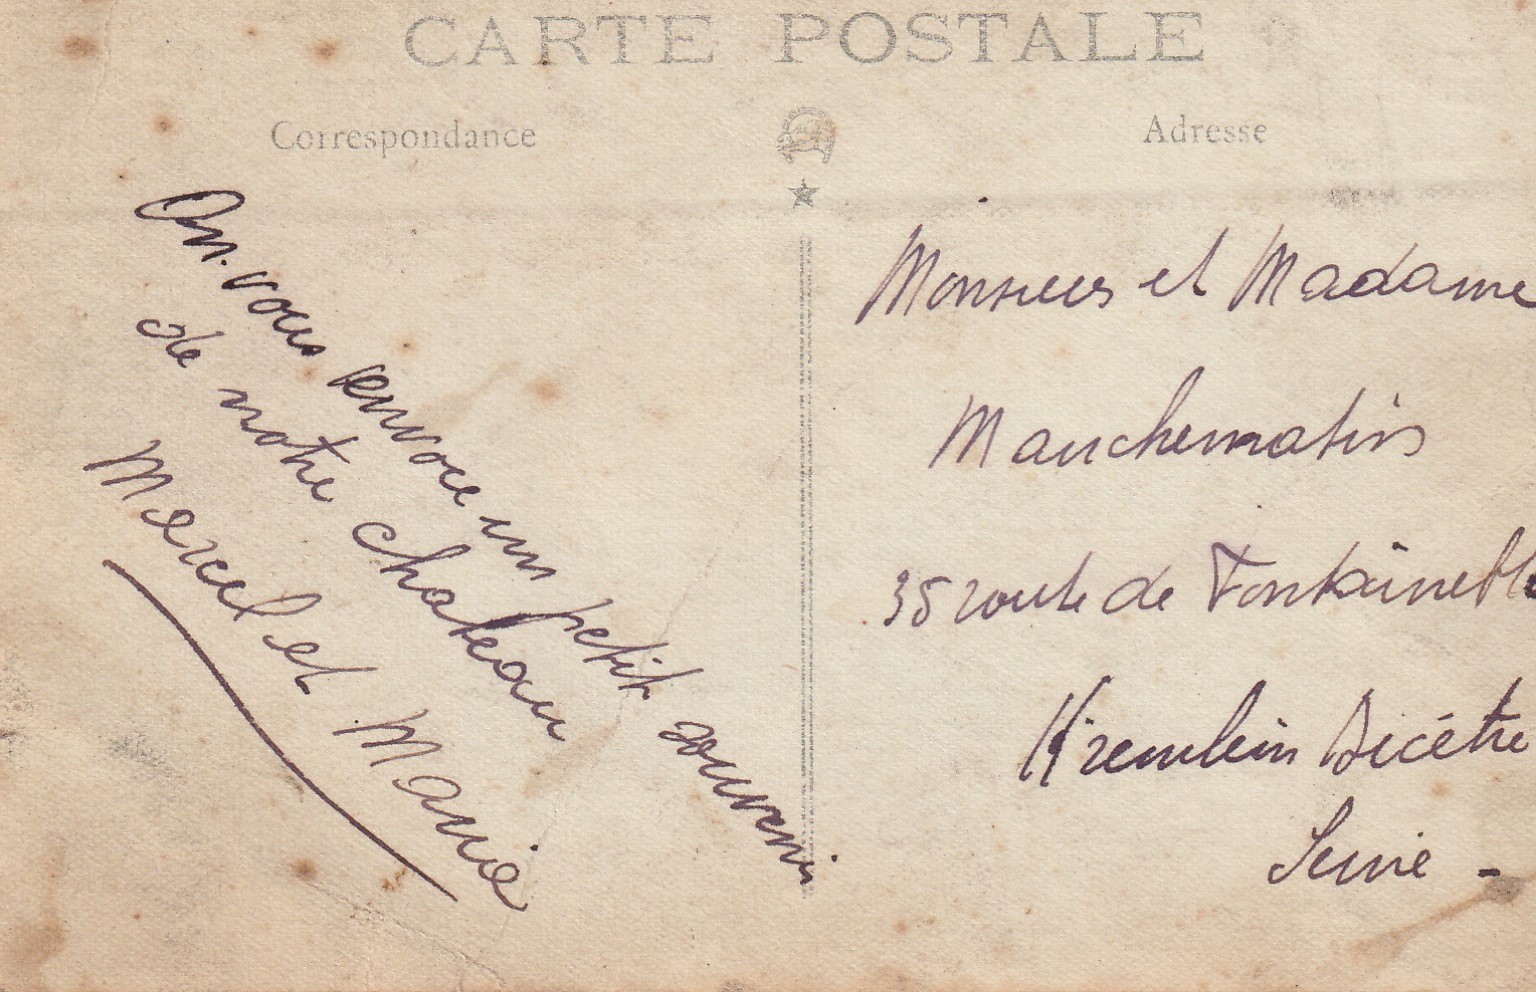 CARTE POSTALE
Correspondance
Adresse
On vous envoie un petit souveni
de notre chateau
Marcel et Marie
Monsieur et Madame
35 route de Fontaineble
Kremlin Bicêtre
Seine -